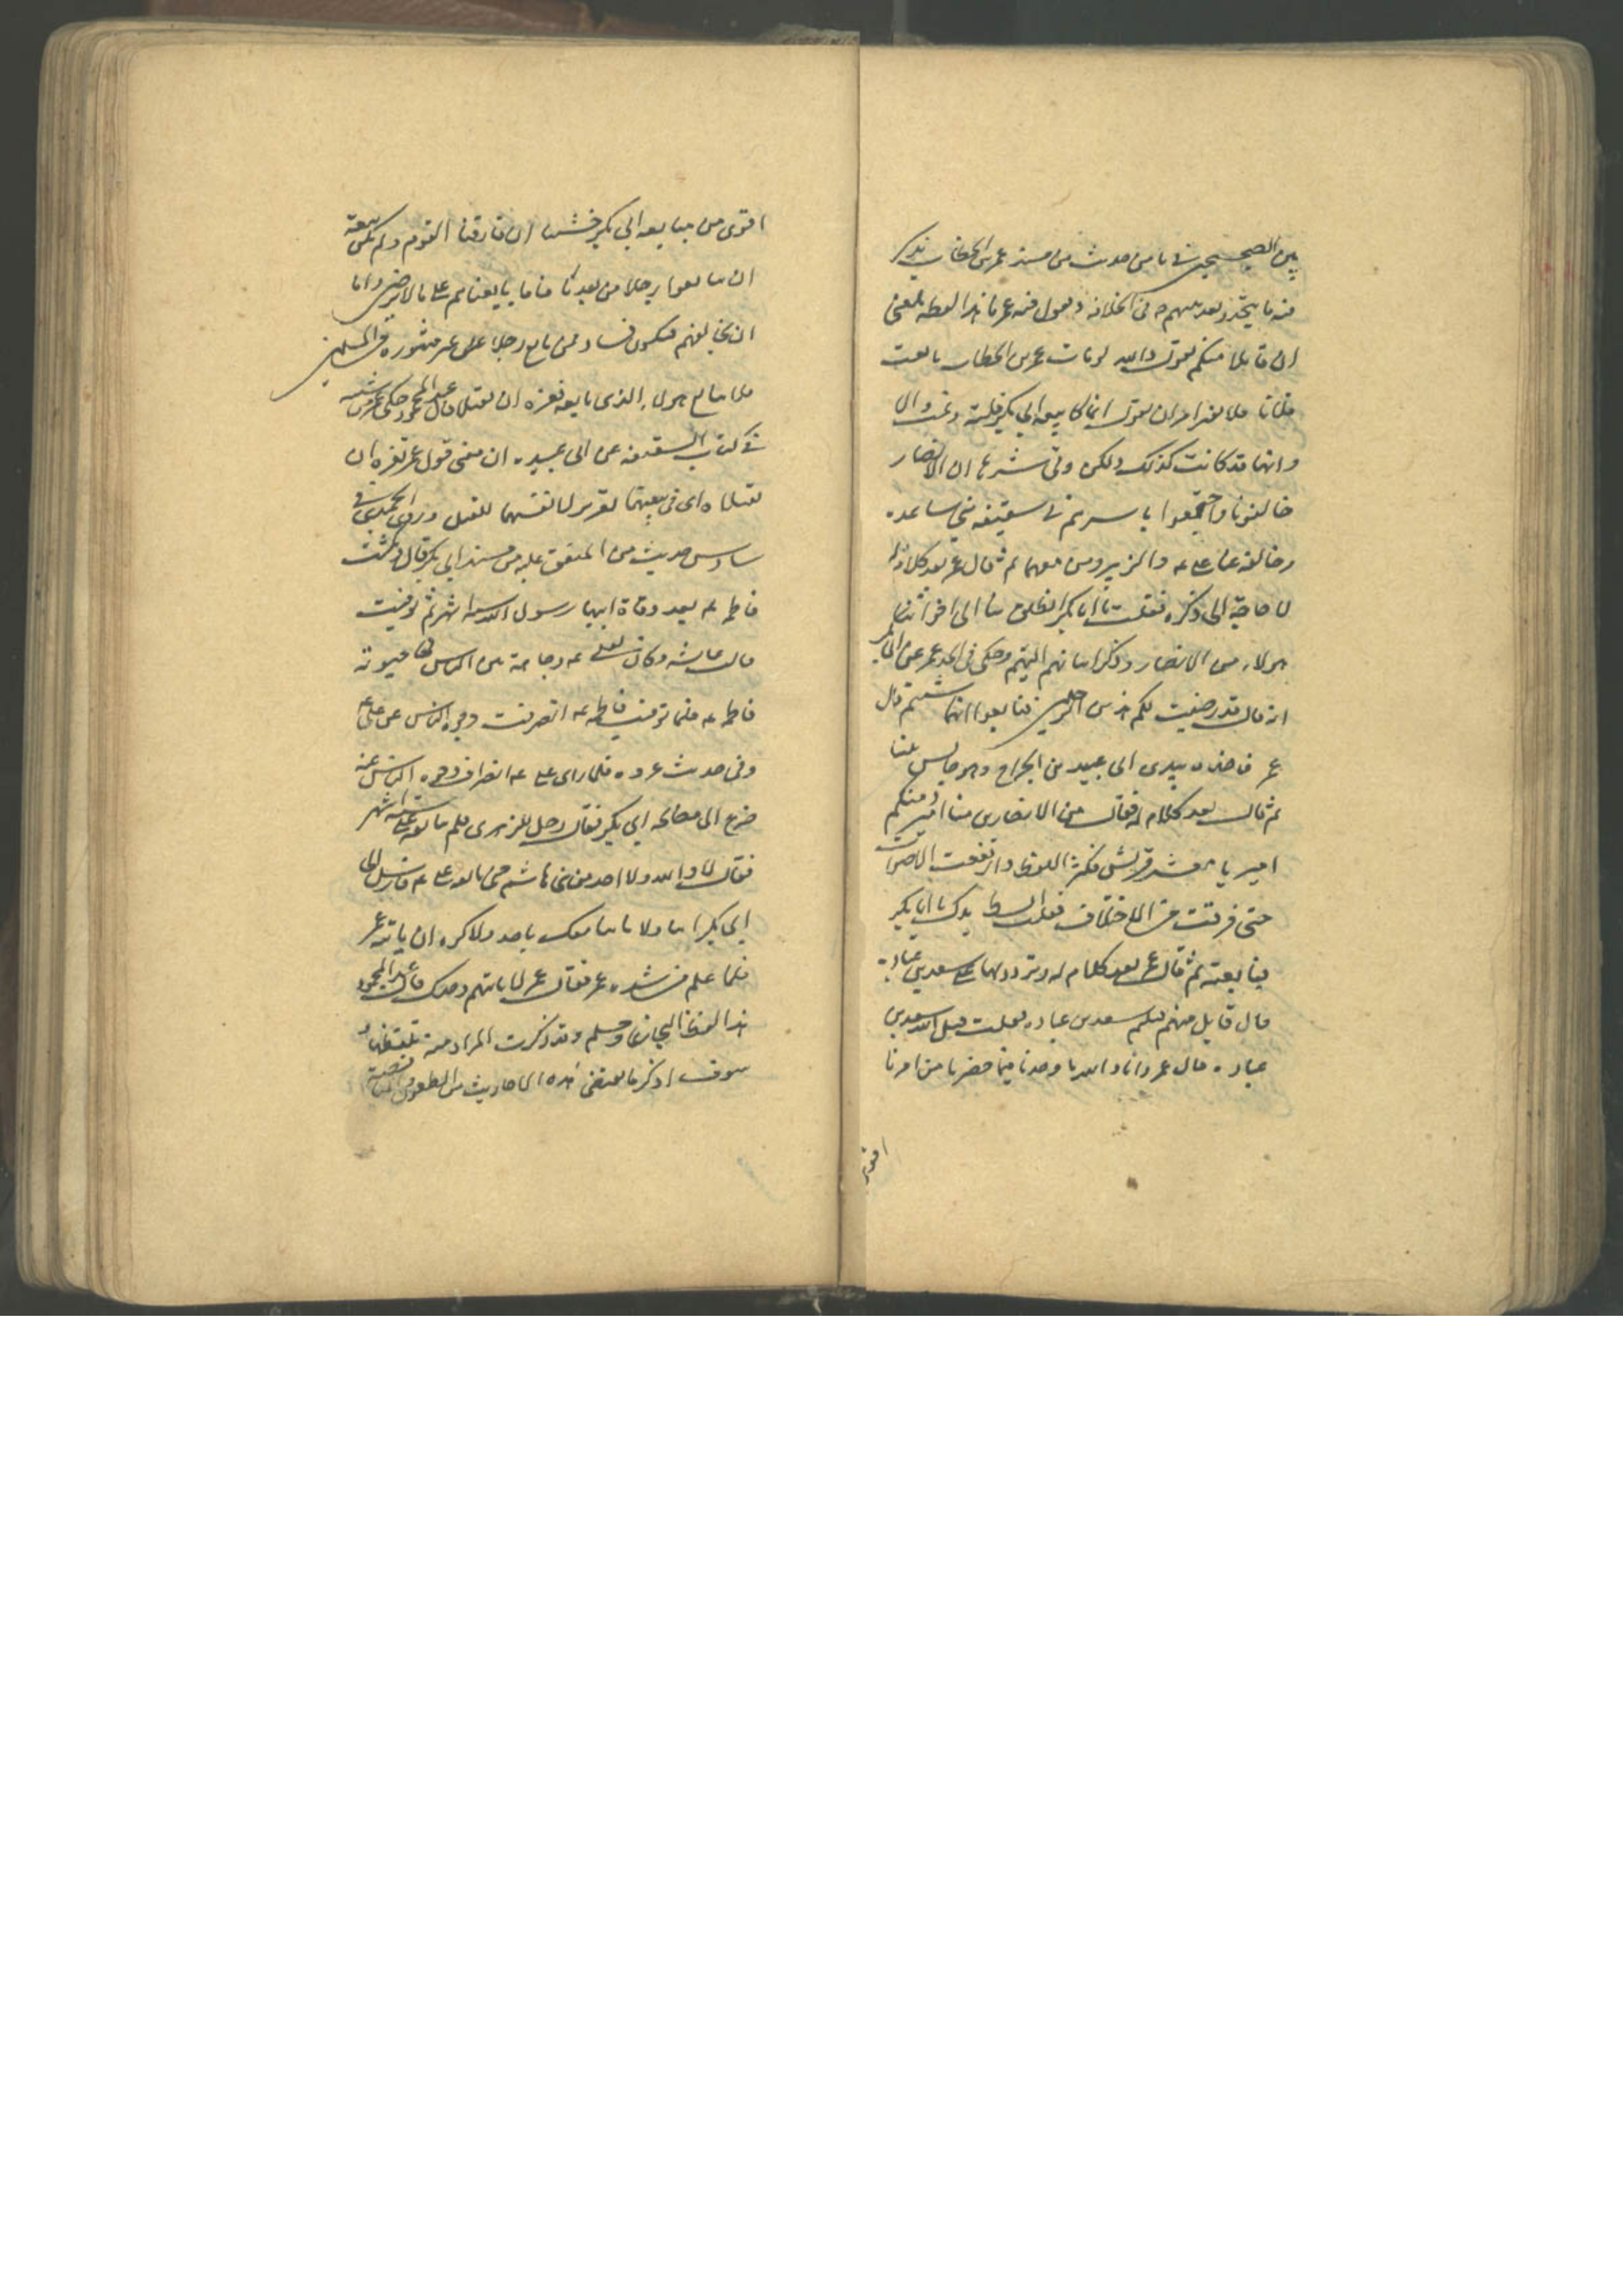 بين الصحيحين في ثامن حديث من مسند عمر بن الخطاب يذكر
فيه ما يتجدد بعد نبيهم ص في الخلافة ويقول فيه عمر ما هذا لفظه بلغني
ان قايلا منكم يقول والله لو مات عمر بن الخطاب بايعت
فلانا فلا يغترا امرؤ ان يقول انما كا بيعه ابي بكر فلتة وتمت والا
وانها قد كانت كذلك ولكن وقى شرها ان الانصار
خالفونا واجتمعوا باسرهم في سقيفه بني ساعده
وخالف عنا علي ع والزبير ومن معهما ثم قال عمر بعد كلام
لا حاجة الى ذكره فقلت يا ابا بكر انطلق بنا الى اخواننا
هولاء من الانصار وذكر اتيانهم اليهم وحكى في الحد عمر عن ابي بكر
انه قال قد رضيت لكم احد الرجلين فبايعوا ايهما شيتم قال
عمر فاخذ بيدي ابي عبيد بن الجراح وهو جالس بيننا
ثم قال بعد كلام له فقال من الانصار منا امير ومنكم
امير يا معشر قريش فكثر اللغط وارتفعت الاصوات
حتى فرقت من الاختلاف فقلت ابسط يدك يا ابا بكر
فبايعته ثم قال عمر بعد كلام له ونزونا على سعد بن عباده
قال قايل منهم قتلتم سعد بن عباده فقلت قتل الله سعد بن
عباده قال عمر وانا والله ما وجدنا فيما حضرنا من امرنا
اقوى
اقوى من مبايعه ابي بكر خشينا ان فارقنا القوم ولم تكن بيعة
ان يبايعوا رجلا من بعدنا فاما بايعناهم على ما لا نرضى واما
ان نخالفهم فيكون فساد فمن بايع رجلا على غير مشوره من المسلمين
فلا يتابع هو ولا الذي بايعه تغره ان يقتلا قال عبد المحمود حكى عمر بن شبه
في كتاب السقيفه عن ابي عبيده ان معنى قول عمر تغره ان
يقتلاه اي في بيعتهما تغرير لانفسهما للقتل وروى الحميدي في
سادس حديث من المتفق عليه من مسند ابي بكر قال ومكثت
فاطمه ع بعد وفاة ابيها رسول الله ستة اشهر ثم توفيت
قالت عايشه وكان لعلي ع وجاهة بين الناس في حيوته
فاطمه ع فلما توفيت فاطمه ع انصرفت وجوه الناس عن علي ع
وفي حديث عروه فلما راى علي ع انصراف وجوه الناس عنه
ضرع الى مصالحه ابي بكر فقال رجل للزهري فلم يبايعه علي ستة اشهر
فقال لا والله ولا احد من بني هاشم حتى بايعه علي ع فارسل الى
ابي بكر ائتنا ولا ياتنا معك باحد ولا كره ان ياته عمر
فلما علم من شده عمر فقال عمر لا تاتهم وحدك قال عبد المحمود
هذا لفظ البخاري ومسلم وقد ذكرت المراد منه بلفظهما و
سوف اذكر ما يقتضي هذه الاحاديث من الطعون